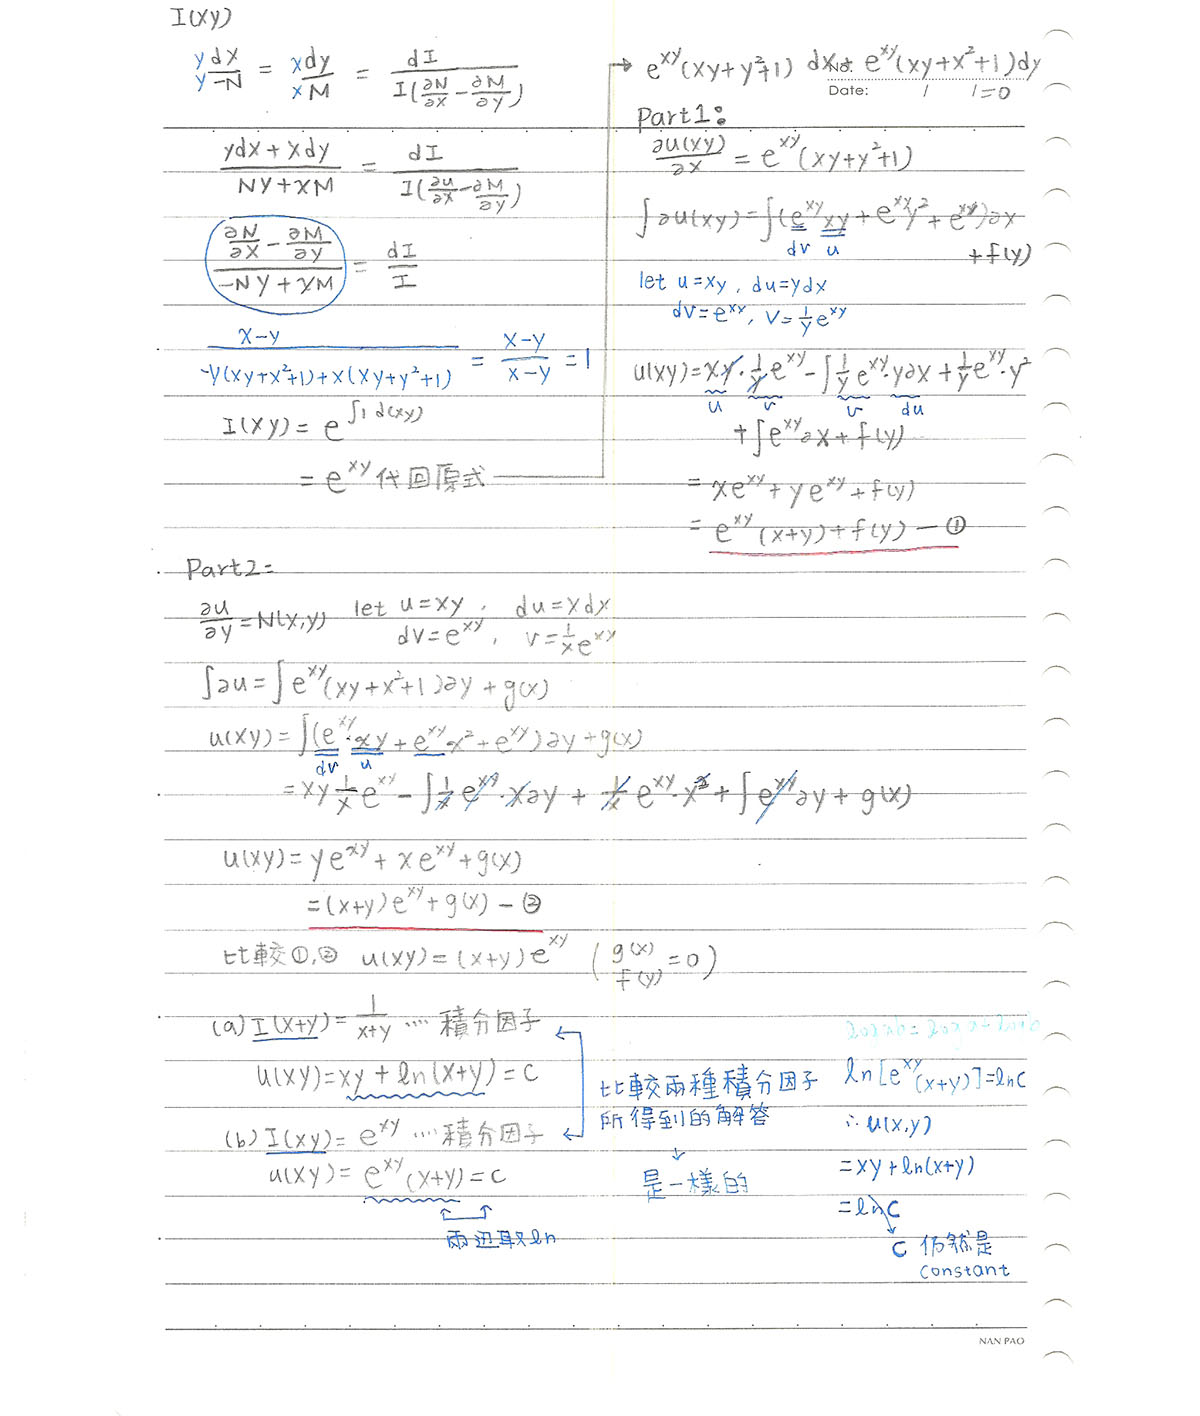 I(xy)
y dx / y -N = x dy / x M = dI / I(∂N/∂x - ∂M/∂y)
ydx + xdy / NY + XM = dI / I(∂u/∂x - ∂M/∂y)
∂N/∂x - ∂M/∂y / -NY + XM = dI / I
x-y / -y(xy+x²+1)+x(xy+y²+1) = x-y / x-y = 1
I(xy) = e^∫1 d(xy)
= e^xy 代回原式
→ e^xy(xy+y²+1) dx + e^xy(xy+x²+1)dy = 0
No.
Date: / /
Part1:
∂u(xy)/∂x = e^xy(xy+y²+1)
∫∂u(xy) = ∫(e^xy xy + e^xy y² + e^xy)∂x + f(y)
dv u
let u=xy, du=ydx
dv=e^xy, v=1/y e^xy
u(xy) = xy·1/y e^xy - ∫1/y e^xy·y∂x + 1/y e^xy·y²
u v v du
+∫e^xy ∂x + f(y)
= xe^xy + ye^xy + f(y)
= e^xy(x+y) + f(y) — ①
Part2:
∂u/∂y = N(x,y) let u=xy, du=xdx
dv=e^xy, v=1/x e^xy
∫∂u = ∫e^xy(xy+x²+1)∂y + g(x)
u(xy) = ∫(e^xy·xy + e^xy·x² + e^xy)∂y + g(x)
dv u
= xy 1/x e^xy - ∫1/x e^xy·x∂y + 1/x e^xy·x² + ∫e^xy ∂y + g(x)
u(xy) = ye^xy + xe^xy + g(x)
= (x+y)e^xy + g(x) — ②
比較①,② u(xy) = (x+y)e^xy (g(x) f(y) = 0)
(a) I(x+y) = 1/x+y ···· 積分因子
u(xy) = xy + ln(x+y) = C
(b) I(xy) = e^xy ···· 積分因子
u(xy) = e^xy(x+y) = C
兩邊取ln
比較兩種積分因子
所得到的解答
↓
是一樣的
ln[e^xy(x+y)] = lnC
∴ u(x,y)
= xy + ln(x+y)
= lnC
C 仍然是
constant
NAN PAO